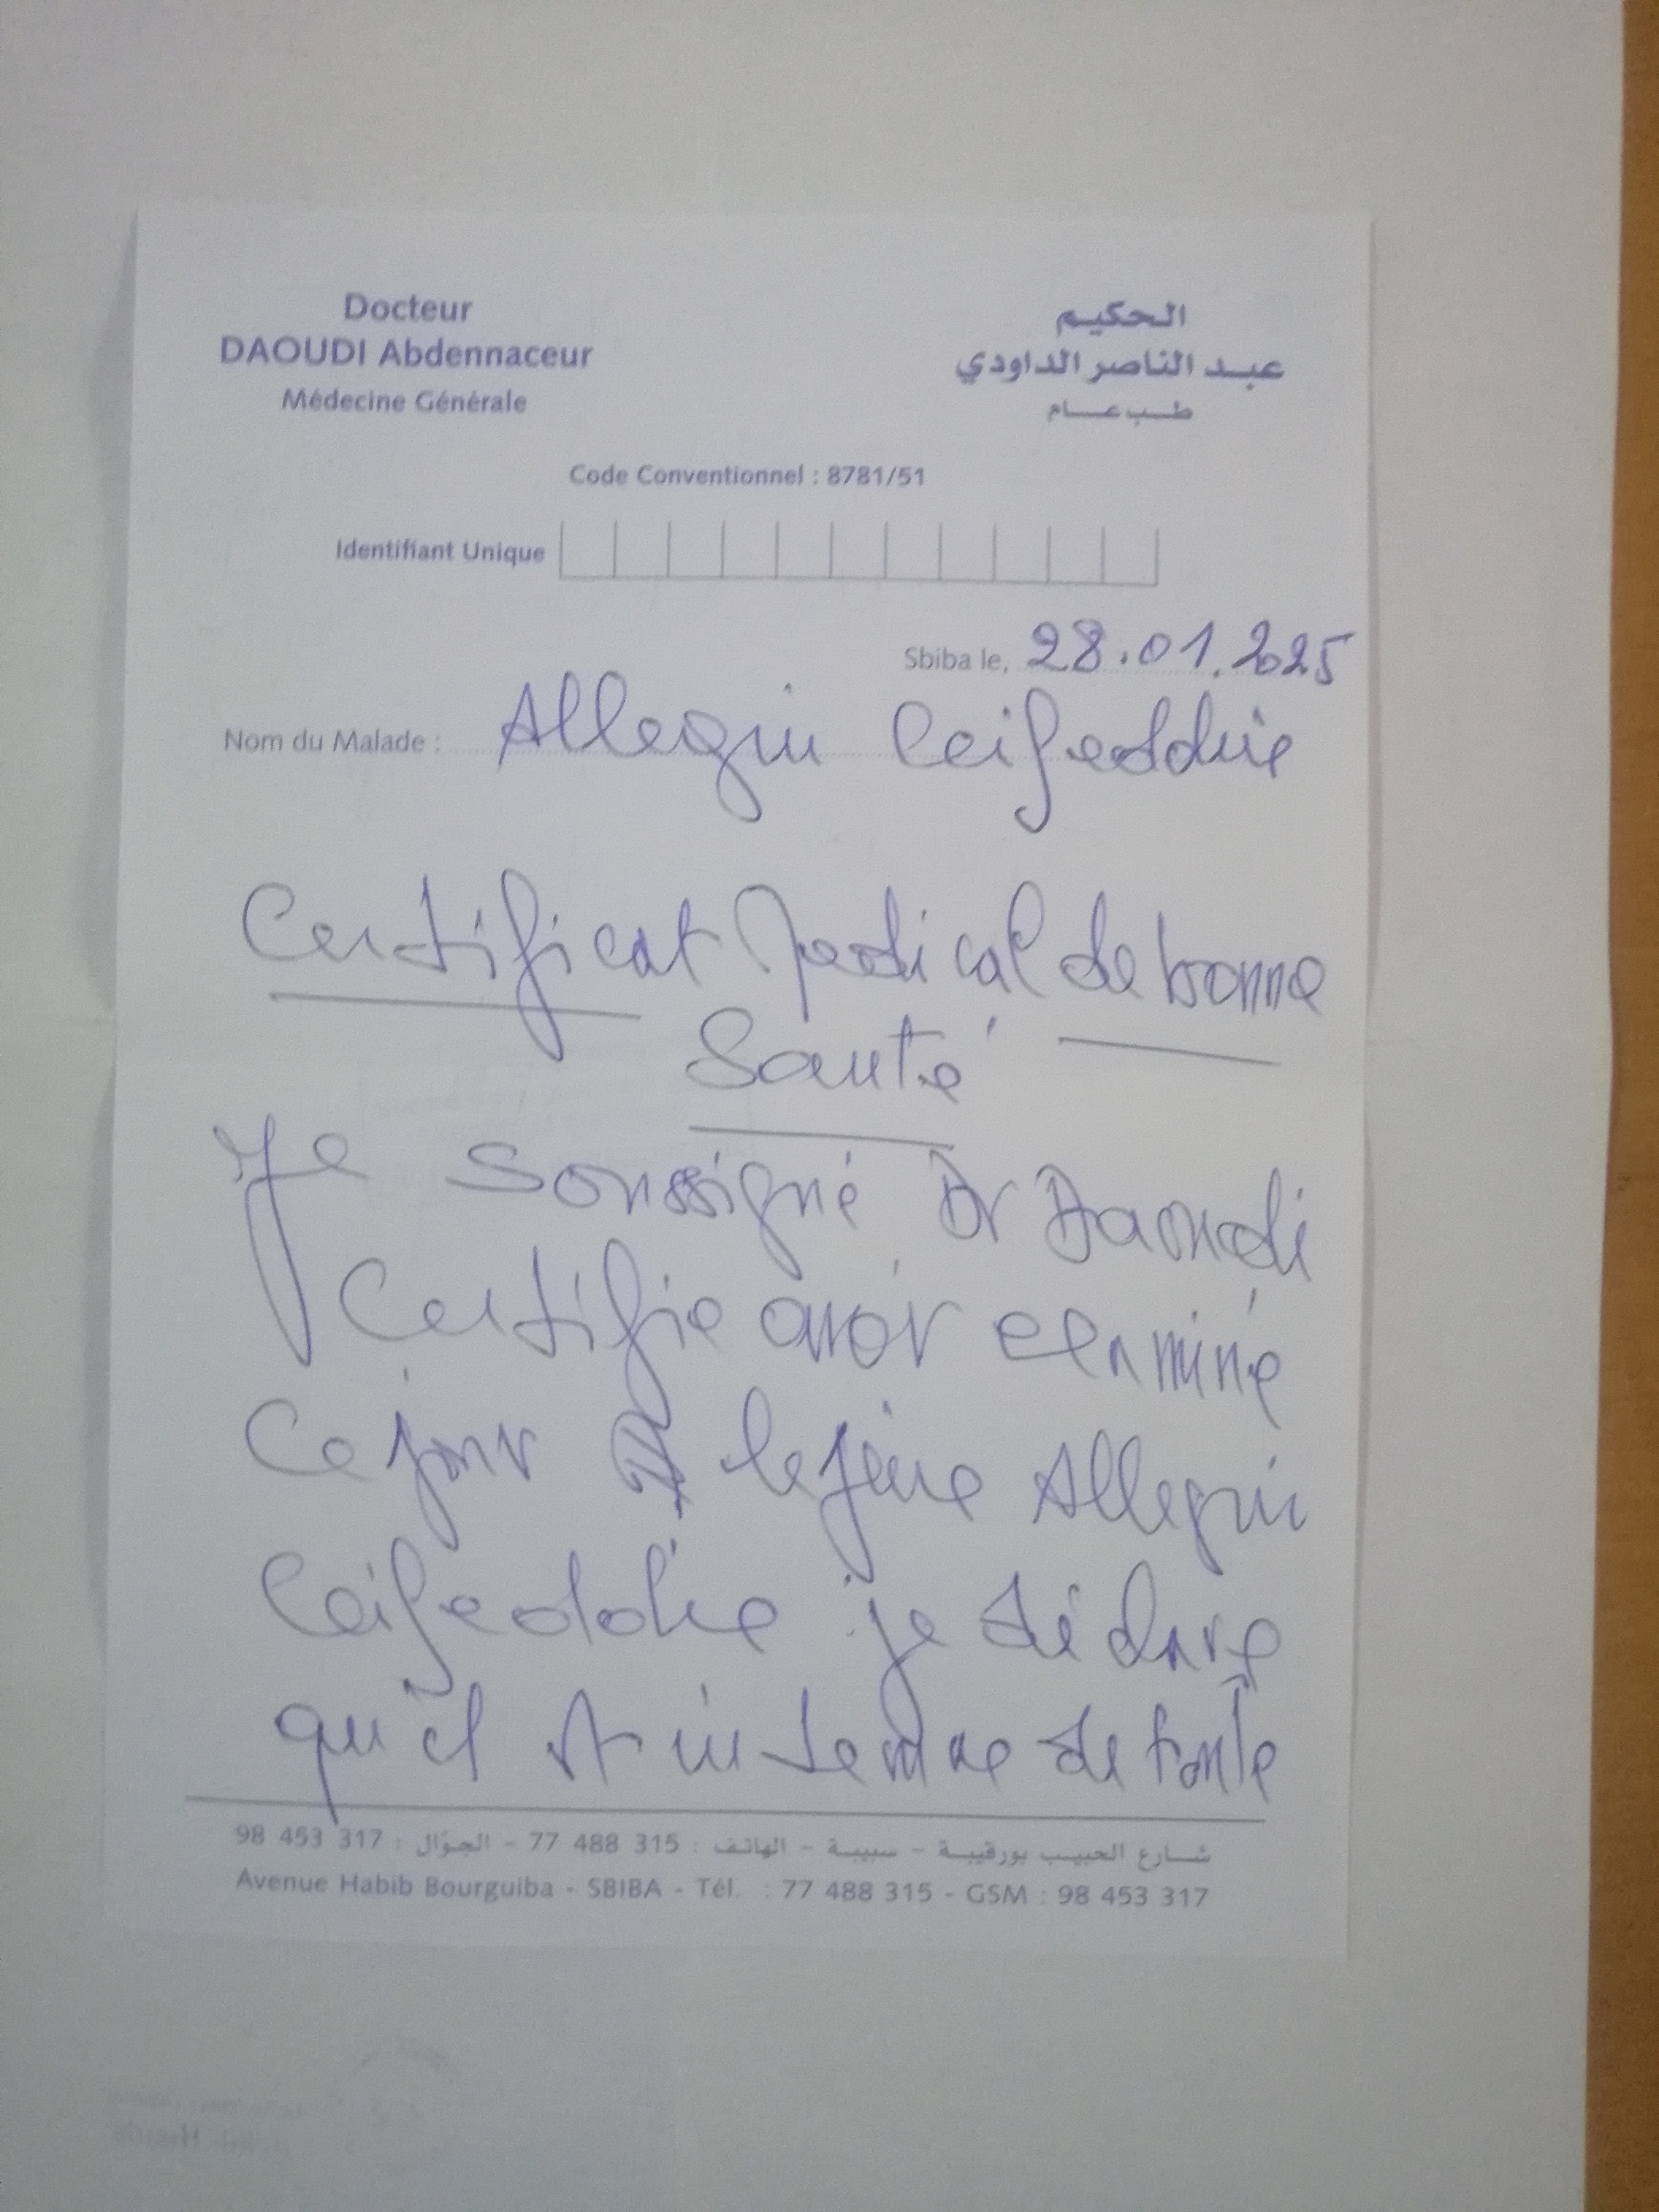 Docteur
DAOUDI Abdennaceur
Médecine Générale
الحكيم
عبد الناصر الداودي
طب عام
Code Conventionnel : 8781/51
Identifiant Unique
Sbiba le, 28.01.2025
Nom du Malade : Allegui Ceifeddine
Certificat Medical de bonne
Santé
Je soussigné Dr Daoudi
Certifie avoir examiné
Ce jour le jeune Allegui
Ceifeddine je déclare
qu'il est indemne de toute
شارع الحبيب بورقيبة - سبيبة - الهاتف : 315 488 77 - الجوّال : 317 453 98
Avenue Habib Bourguiba - SBIBA - Tél. : 77 488 315 - GSM : 98 453 317